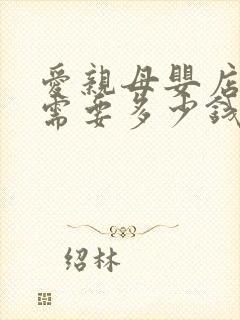 愛親母嬰店
需要多少錢
绍林